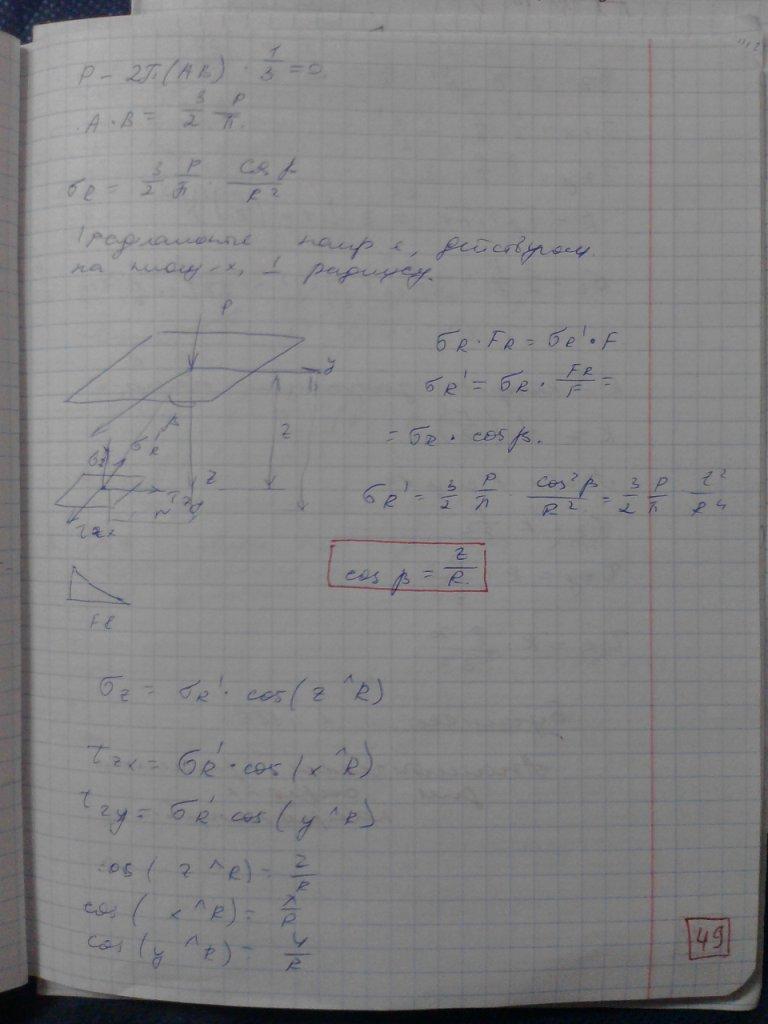 P - 2π(AB) · 1/3 = 0
A · B = 3/2 P/π.
σR = 3/2 P/π · cos β/R²
Радиальные напр-я, действующ.
на площ-х, ⊥ радиусу.
P
y
β
z
σz
σR'
z
r
τzy
τzx
σR · FR = σR' · F
σR' = σR · FR/F =
= σR · cos β.
σR' = 3/2 P/π · cos² β/R² = 3/2 P/π · z²/R⁴
cos β = z/R.
σz = σR' · cos(z ^ R)
τzx = σR' · cos(x ^ R)
τzy = σR' cos(y ^ R)
cos( z ^ R) = z/R
cos( x ^ R) = x/R
cos(y ^ R) = y/R
49